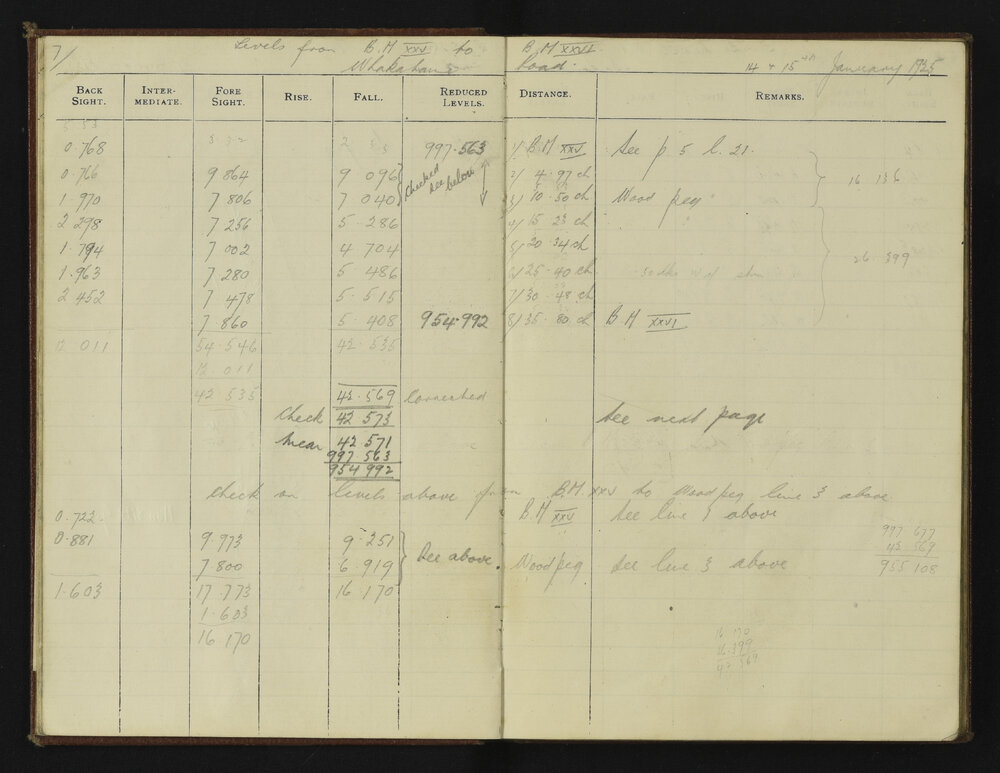 7/ Levels from B.M XXV to B.M XXVI
Road. 14 & 15th January 1925
BACK SIGHT. INTER-MEDIATE. FORE SIGHT. RISE. FALL. REDUCED LEVELS. DISTANCE. REMARKS.
0.768 997.563 1/ B.M XXV See p. 5 l. 21.
0.766 9 864 9 096 Checked see below 2/ 4.97 ch
16 136
1.970 7 806 7 040 3/ 10.50 ch Wood peg
2 298 7 256 5.286 4/ 15 23 ch
1.794 7 002 4 704 5/ 20.34 ch
26.399
1.963 7 280 5 486 6/ 25.40 ch
2 452 7 478 5.515 7/ 30.48 ch
7 860 5.408 954.992 8/ 35.80 ch B M XXVI
12 011 54.546 42.535
12.011
42 535 42.569 Corrected
Check 42 573 See next page
Mean 42 571
997 563
954 992
Check on levels above from B.M. XXV to Wood peg line 3 above
0.722 B.M XXV See line 1 above
0.881 9.973 9.251
7 800 6.919 See above. Wood peg See line 3 above
997 677
42 569
955 108
1.603 17.773 16 170
1.603
16 170
16 170
26.399
42 569